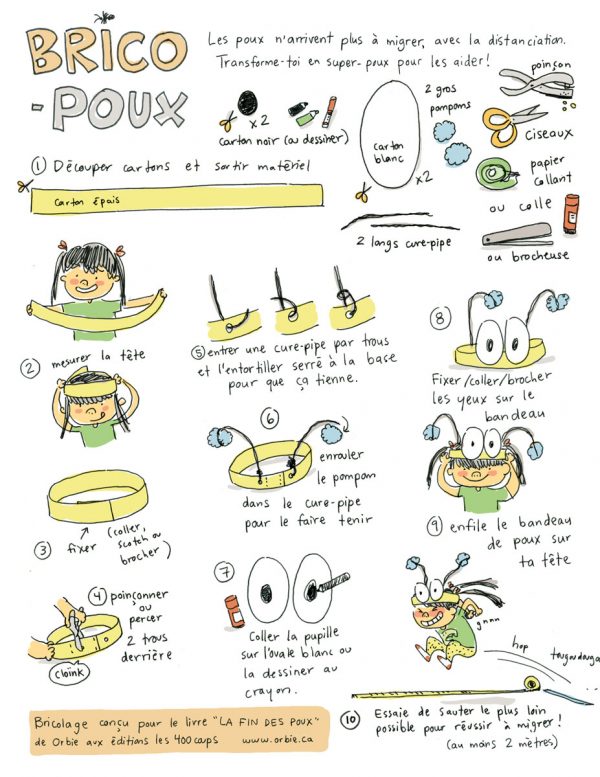 BRICO
-POUX
Les poux n'arrivent plus à migrer, avec la distanciation.
Transforme-toi en super-poux pour les aider!
x2
carton noir (ou dessiner)
carton
blanc
x2
2 gros
pompoms
2 longs cure-pipe
poinçon
ciseaux
papier
collant
ou colle
ou brocheuse
① Découper cartons et sortir matériel
carton épais
② mesurer la tête
③ fixer (coller,
scotch ou
brocher)
④ poinçonner
ou
percer
2 trous
derrière
cloink
⑤ entrer une cure-pipe par trous
et l'entortiller serré à la base
pour que ça tienne.
⑥
enrouler
le pompom
dans le cure-pipe
pour le faire tenir
⑦
Coller la pupille
sur l'ovale blanc ou
la dessiner au
crayon.
⑧
Fixer/coller/brocher
les yeux sur le
bandeau
⑨ enfile le bandeau
de poux sur
ta tête
gnnn
hop
⑩ Essaie de sauter le plus loin
possible pour réussir à migrer!
(au moins 2 mètres)
Bricolage conçu pour le livre "LA FIN DES POUX"
de Orbie aux éditions les 400 coups www.orbie.ca